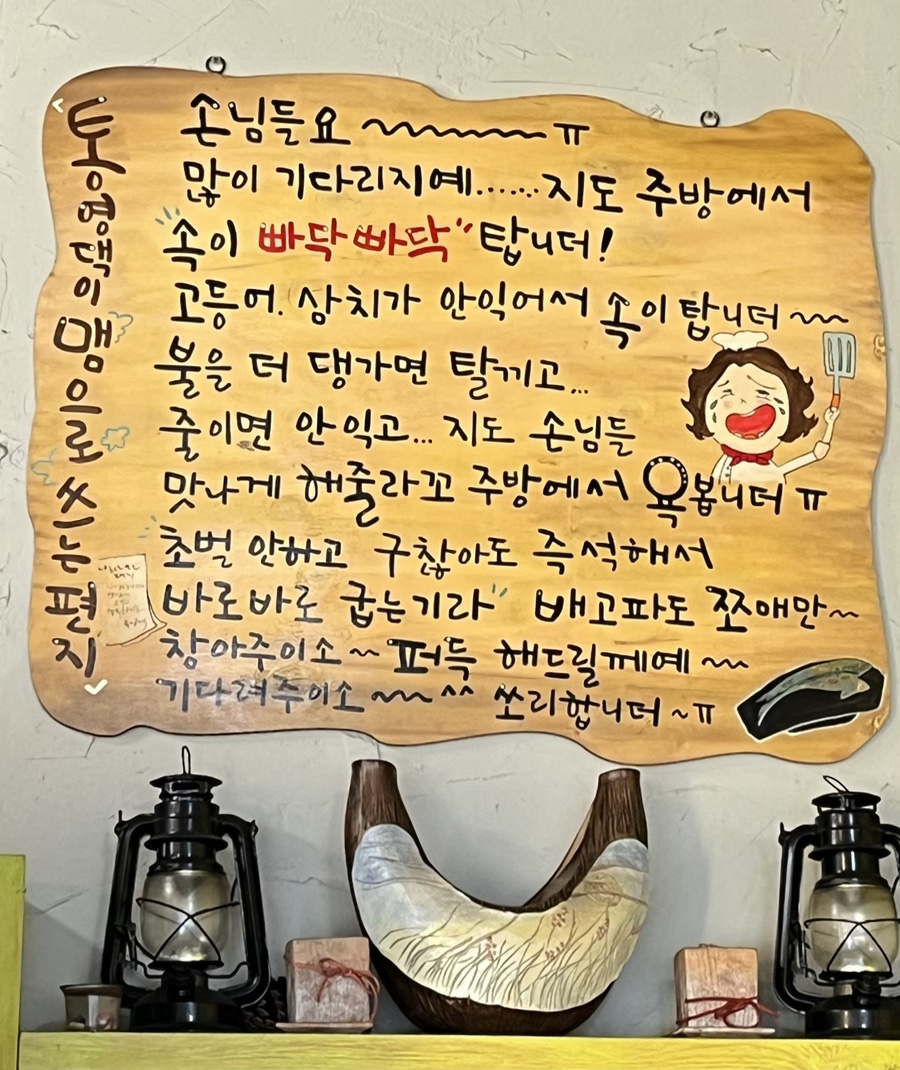 통영댁이 맴으로 쓰는 편지
손님들요~~~ㅠ
많이 기다리지예......지도 주방에서
"속이 빠닥빠닥" 탑니더!
고등어. 삼치가 안익어서 속이 탑니더~~
불을 더 댕가면 탈끼고...
줄이면 안익고... 지도 손님들
맛나게 해줄라꼬 주방에서 욕봅니더 ㅠ
"초벌 안하고 구찮아도 즉석해서
바로바로 굽는기라" 배고파도 쪼매만~
참아주이소~ 퍼득 해드릴께예~~
기다려주이소~~^^ 쏘리합니더~ㅠ